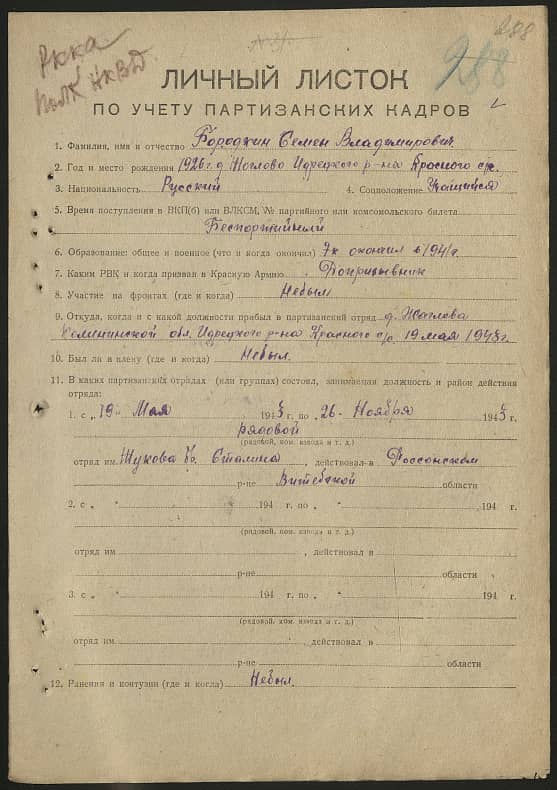 288
288
РККА
полк НКВД
ЛИЧНЫЙ ЛИСТОК
ПО УЧЕТУ ПАРТИЗАНСКИХ КАДРОВ
1. Фамилия, имя и отчество Бородкин Семен Владимирович
2. Год и место рождения 1926 г. д. Жоглово Идрецкого р-на Красного с/с.
3. Национальность Русский 4. Соцположение Учащийся
5. Время поступления в ВКП(б) или ВЛКСМ, № партийного или комсомольского билета
Беспортийный
6. Образование: общее и военное (что и когда окончил) 7 к окончил в 1941 г.
7. Каким РВК и когда призван в Красную Армию Допризывник
8. Участие на фронтах (где и когда) Небыл
9. Откуда, когда и с какой должности прибыл в партизанский отряд д. Жоглова
Калининской обл. Идрецкого р-на Красного с/с. 19 мая 1943 г.
10. Был ли в плену (где и когда) Небыл.
11. В каких партизанских отрядах (или группах) состоял, занимаемая должность и район действия
отряда:
1. с „19" Мая 1943 г. по „26" Ноября 1943 г.
рядовой
(рядовой, ком. взвода и т. д.)
отряд им. Жукова бр. Сталина, действовал в Россонском
р-не Витебской области
2. с „ " 194 г. по „ " 194 г.
(рядовой, ком. взвода и т. д.)
отряд им , действовал в
р-не области
3. с „ " 194 г. по „ " 194 г.
(рядовой, ком. взвода и т. д.)
отряд им , действовал в
р-не области
12. Ранения и контузии (где и когда) Небыл.